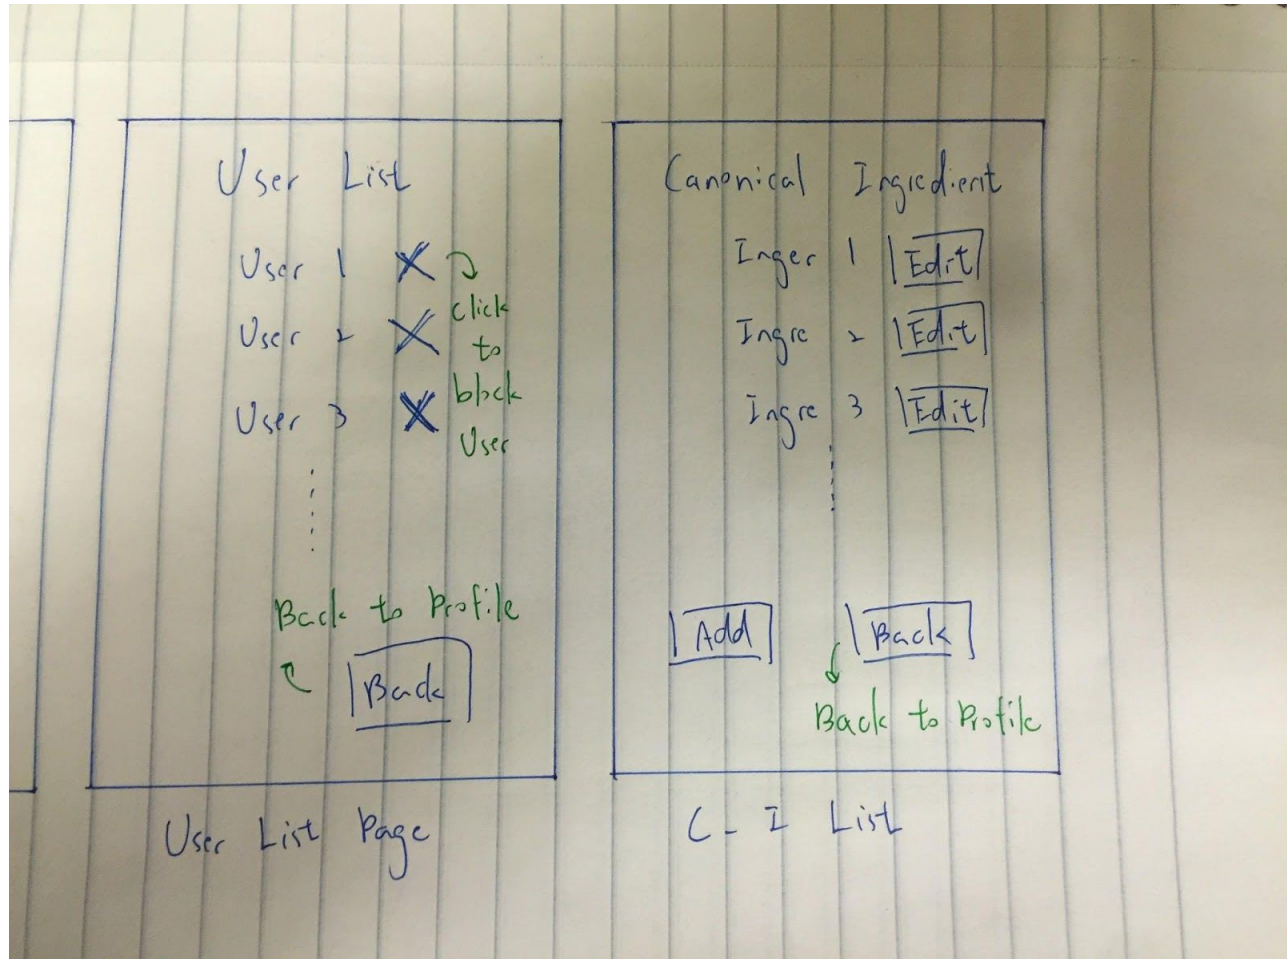 User List
User 1 X
click
to
block
User
User 2 X
User 3 X
Back to Profile
Back
User List Page
Canonical Ingredient
Inger 1 Edit
Ingre 2 Edit
Ingre 3 Edit
Add Back
Back to Profile
C - I List